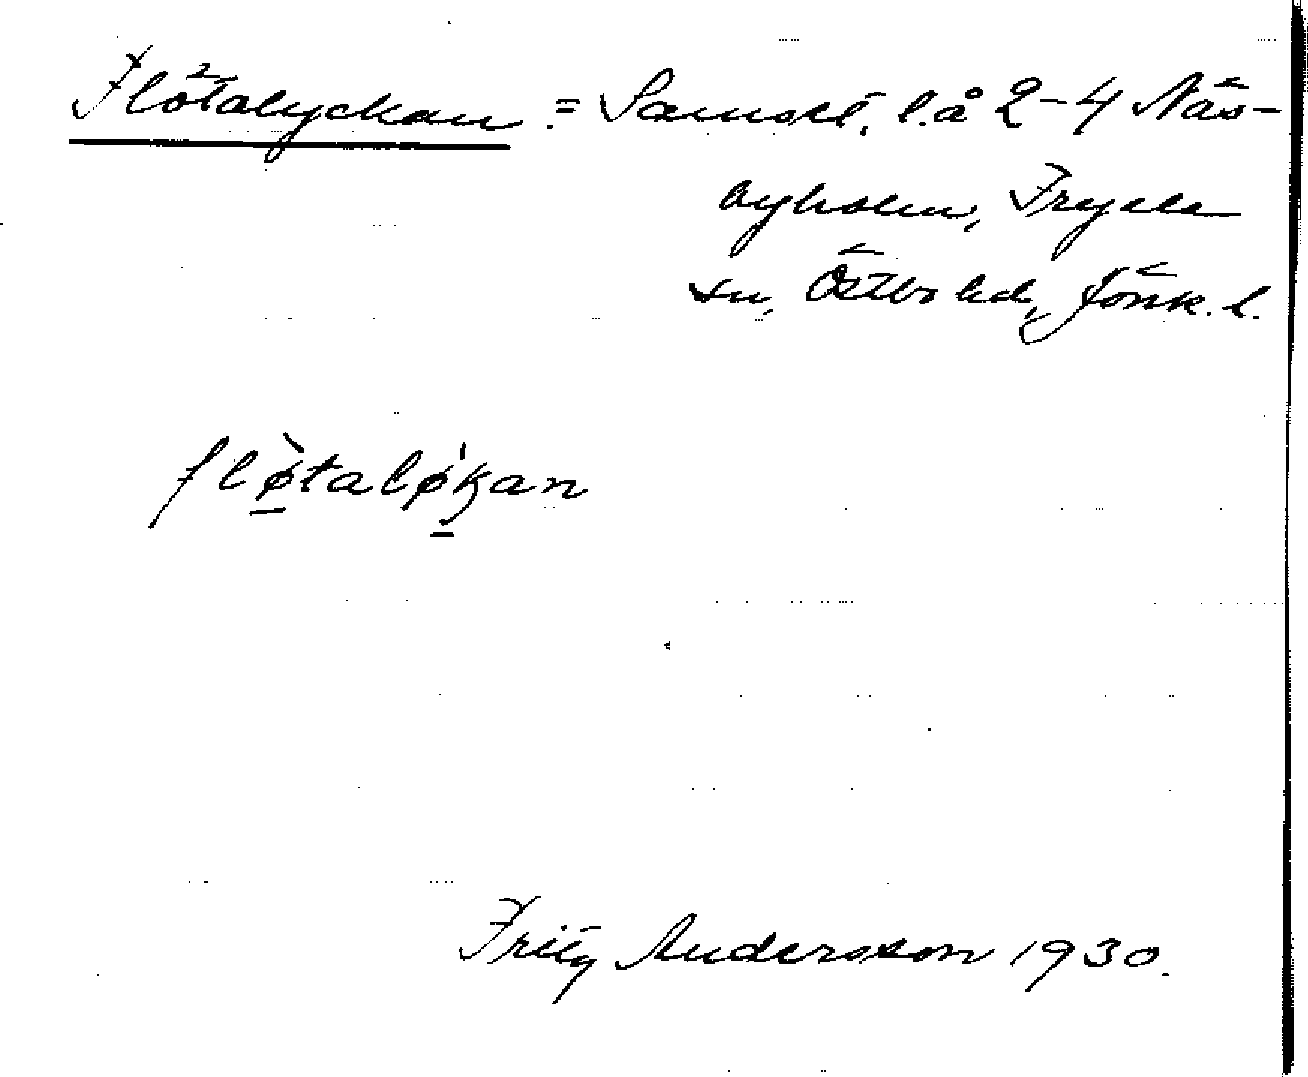 Flötalyckan = Samset. l. å 2-4 Näs-
byholm, Fryele
sn, Östbo hd, Jönk. l.
fløtaløkan
Fritz Andersson 1930.